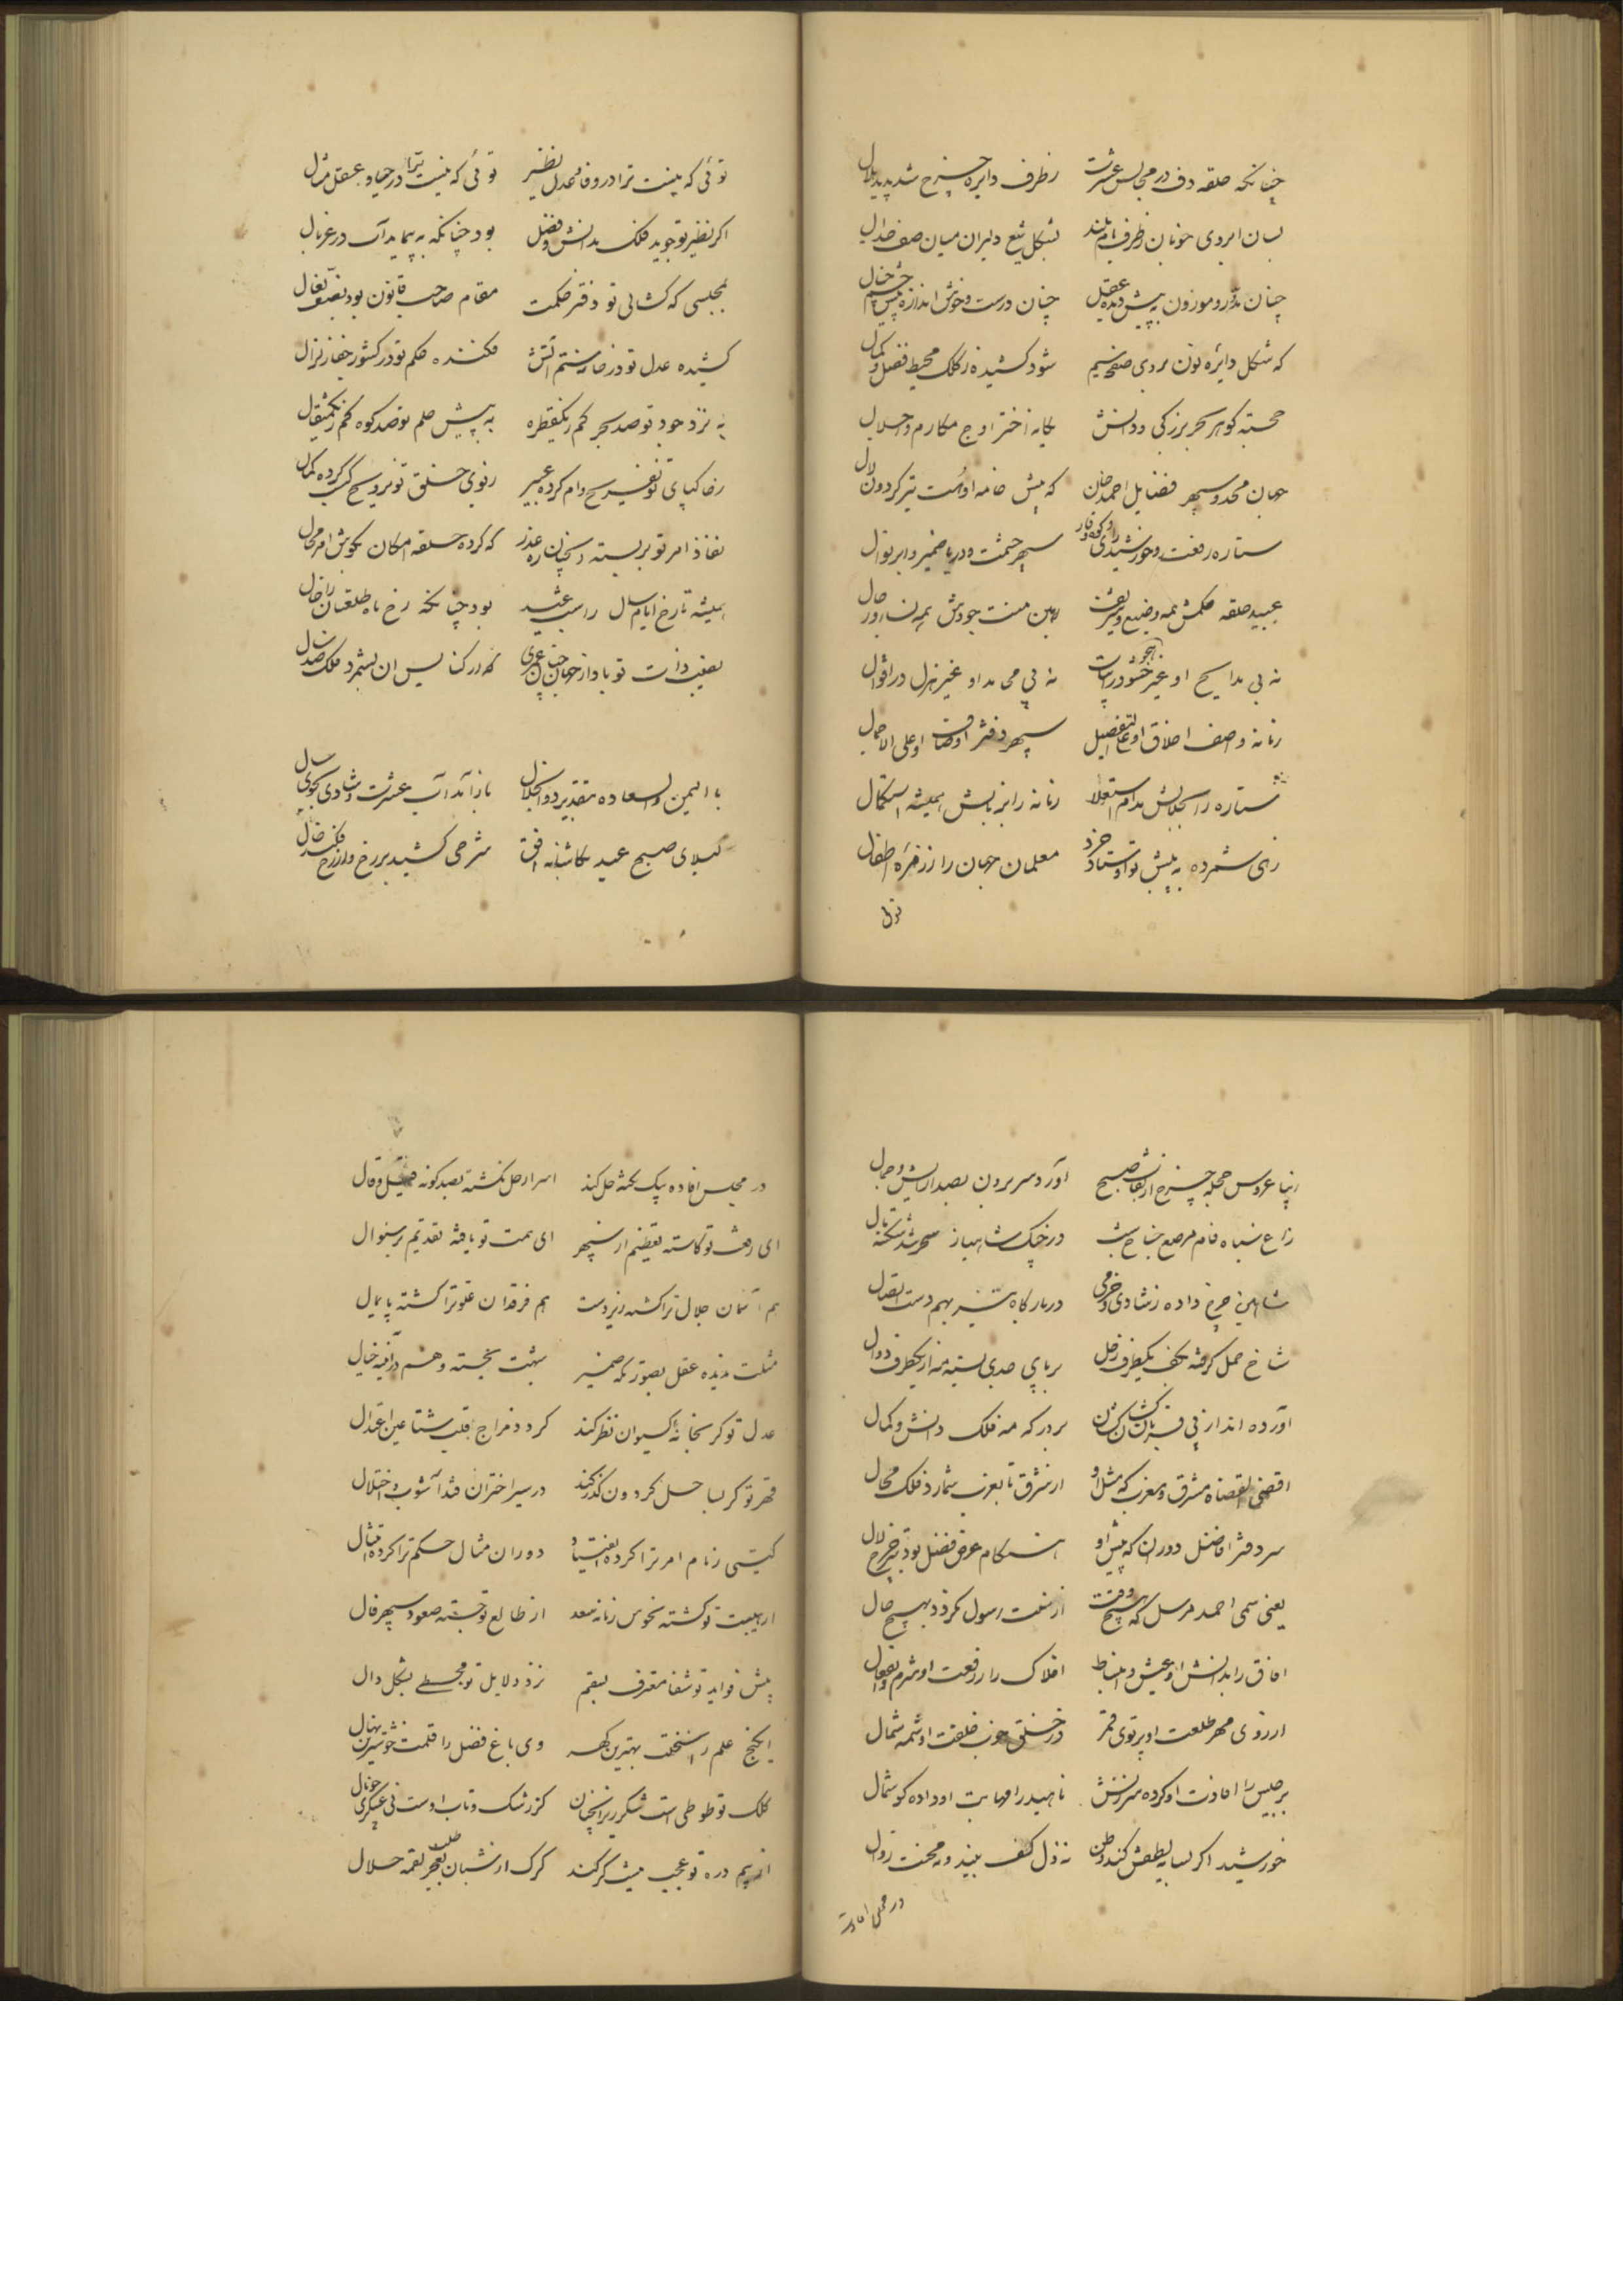 چنانکه حلقه دف در مجالس عشرت ز طرف دایره چرخ شد پدید هلال
بسان ابروی خوبان ز طرف بام بلند بشکل تیغ دلیران میان صف جدال
چنان مدور و موزون به پیش دیده عقل چنان درست و خوش اندازه پیش چشم خیال
که شکل دایره نون بروی صفحه سیم شود کشیده ز کلک محیط فضل و کمال
خجسته گوهر بحر بزرگی و دانش یگانه اختر اوج مکارم و اجلال
جهان مجد و سپهر فضایل احمد خان که پیش خامه او هست تیر گردون لال
ستاره رفعت و خورشید رای و کوه وقار سپهر حشمت و دریا ضمیر و ابر نوال
عبید حلقه حکمش همه وضیع و شریف رهین منت جودش همه نسا و رجال
نه بی مدایح او غیر هجو در ابیات نه بی محامد او غیر هزل در اقوال
زمانه واصف اخلاق او علی التفصیل سپهر دفتر اوصاف او علی الاجمال
ستاره را بجلالش مدام استعلا زمانه را بزبانش همیشه استکمال
زهی شمرده به پیش تو اوستاد خرد معلمان جهان را ز زمره اطفال
توئی
توئی که نیست ترا در وفا و عدل نظیر توئی که نیست ترا در حیا و عقل مثال
اگر نظیر تو جوید فلک بدانش و فضل بود چنانکه به پیماید آب در غربال
بمجلسی که گشایی تو دفتر حکمت مقام صاحب قانون بود بصف نعال
کشیده عدل تو در خانه ستم آتش فکننده حکم تو در کشور جفا زلزال
به نزد جود تو صد بحر کم ز یکقطره به پیش حلم تو صد کوه کم ز یکمثقال
ز خاکپای تو تفریح وام کرده عبیر ز بوی خلق تو ترویح کسب کرده شمال
نفاذ امر تو بربسته ز آنچنان ره عذر که کرده حلقه امکان بگوش امر محال
همیشه تا رخ ایام سال را شب عید بود چنانکه رخ ماه طلعتان را خال
نصیب ذات تو باد از جهان چنان عمری که در کنایس آن بشمرد فلک صد سال
با الیمن و السعاده بتقدیر ذوالجلال باز آمد آب عشرت و شادی بجوی سال
لیلای صبح عید بکاشانه افق سرخی کشید بر رخ و از رخ فکند خال
زیبا عروس حجله چرخ از نقاب صبح آورد سر برون بصد آرایش و جمال
زاغ سیاه فام مرصع جناح شب در چنگ شاهباز سحر شد شکسته بال
شاهین چرخ داده ز شادی و خرمی در بارگاه تیر بهم دست اتصال
شاخ حمل گرفته بکف یکطرف زحل بر پای جدی بسته مه از یکطرف دوال
آورده اند از پی قربان کشان کشان بر درگه مه فلک دانش و کمال
اقضی القضاه مشرق و مغرب که مثل او از مشرق تا بغرب شمارد فلک محال
سر دفتر افاضل دوران که پیش او هنگام عرض فضل بود تیر چرخ لال
یعنی سمی احمد مرسل که هیچوقت از سنت رسول نگردد بهیچ حال
آفاق را بدانش او عیش و انبساط افلاک را ز رفعت او شرم و انفعال
از روی مهر طلعت او پرتوی قمر در خلق خوب خلقت او شمه شمال
برجیس را افادت او کرده سرزنش ناهید را مهابت او داده گوشمال
خورشید اگر بسایه لطفش کند وطن نه ذل کسف بیند و نه محنت زوال
در مجلس افاده
در مجلس افاده بیک نکته حل کند اسرار حل نگشته بصد گونه قیل و قال
ای رفعت تو کاسته تعظیم از سپهر ای همت تو یافته تقدیم بر سؤال
هم آسمان جلال ترا گشته زیردست هم فرقدان علو ترا گشته پایمال
مثلت ندیده عقل بصورتگه ضمیر شبهت نجسته وهم در آئینه خیال
عدل تو گر بخانه کیوان نظر کند گردد مزاج قلب شتا عین اعتدال
قهر تو گر بساحل گردون گذر کند در سیر اختران فتد آشوب و اختلال
گیتی زمام امر ترا کرده انقیاد دوران مثال حکم ترا کرده امتثال
از هیبت تو گشته نحوس زمانه سعد از طالع تو جسته صعود سپهر فال
پیش فواید تو شفا معترف بسقم نزد دلایل تو مجسطی بشکل دال
ای گنج علم را سخنت بهترین گهر وی باغ فضل را قلمت خوشترین نهال
کلک تو طوطی است شکرریز آنچنان کز رشک و تاب اوست نی عسکری چو نال
از بیم دره تو عجب نیست گر کند گرگ از شبان طلب بعجز لقمه حلال